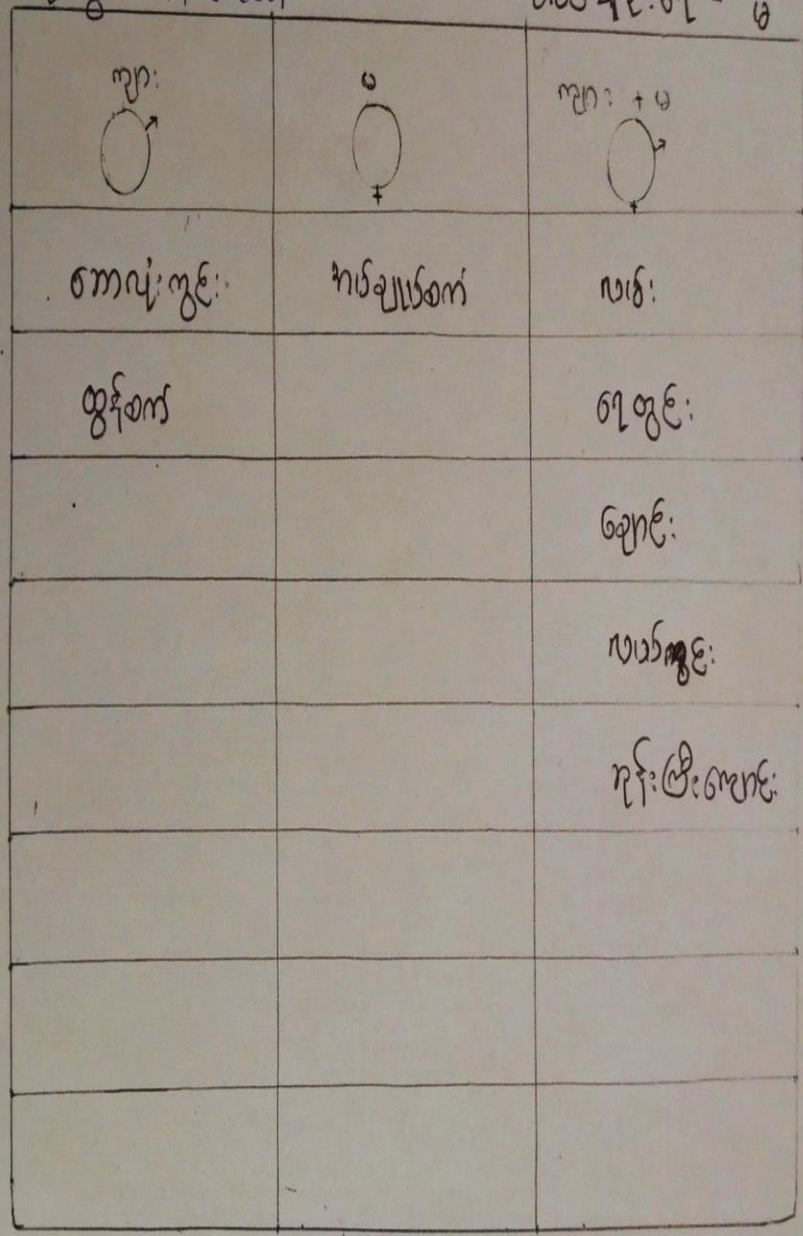 ကျား
မ
ကျား + မ
ဘောလုံးကွင်း
အပ်ချုပ်စက်
လမ်း
ထွန်စက်
ရေတွင်း
ချောင်း
လယ်ကွင်း
ဘုန်းကြီးကျောင်း